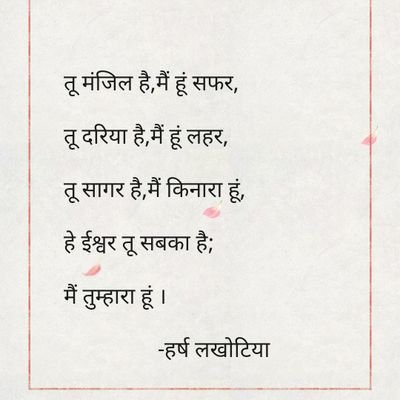 तू मंजिल है,मैं हूं सफर,
तू दरिया है,मैं हूं लहर,
तू सागर है,मैं किनारा हूं,
हे ईश्वर तू सबका है;
मैं तुम्हारा हूं ।
-हर्ष लखोटिया